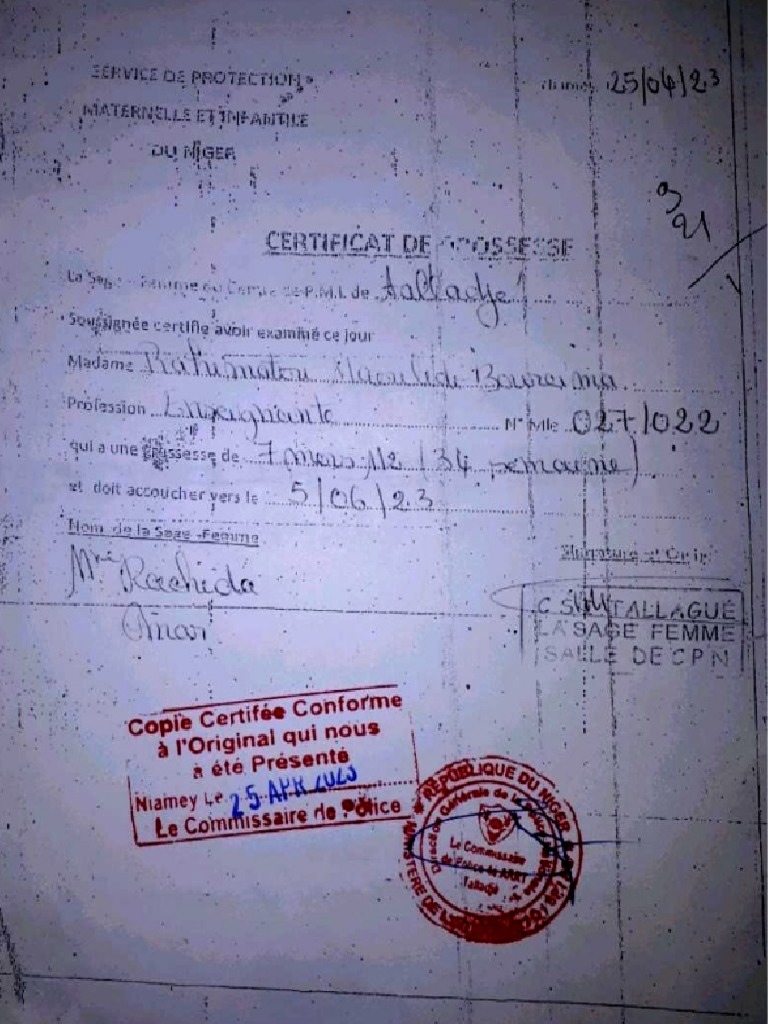 SERVICE DE PROTECTION
MATERNELLE ET INFANTILE
DU NIGER
25/04/23
9/21
CERTIFICAT DE GROSSESSE
La Sage-Femme du Centre de P.M.I. de
Soussignée certifie avoir examiné ce jour
Madame Bouraima
Profession Enseignante N° Mle 027/022
qui a une grossesse de 7 mois 1/2 (34 semaine)
et doit accoucher vers le 5/06/23
Nom de la Sage-Femme
Mme Rachida
Omar
TALLAGUÉ
LA SAGE FEMME
SALLE DE CPN
Copie Certifée Conforme
à l'Original qui nous
a été Présenté
Niamey Le 25 APR 2023
Le Commissaire de Police
REPUBLIQUE DU NIGER
Le Commissaire
de Police
Talladjé